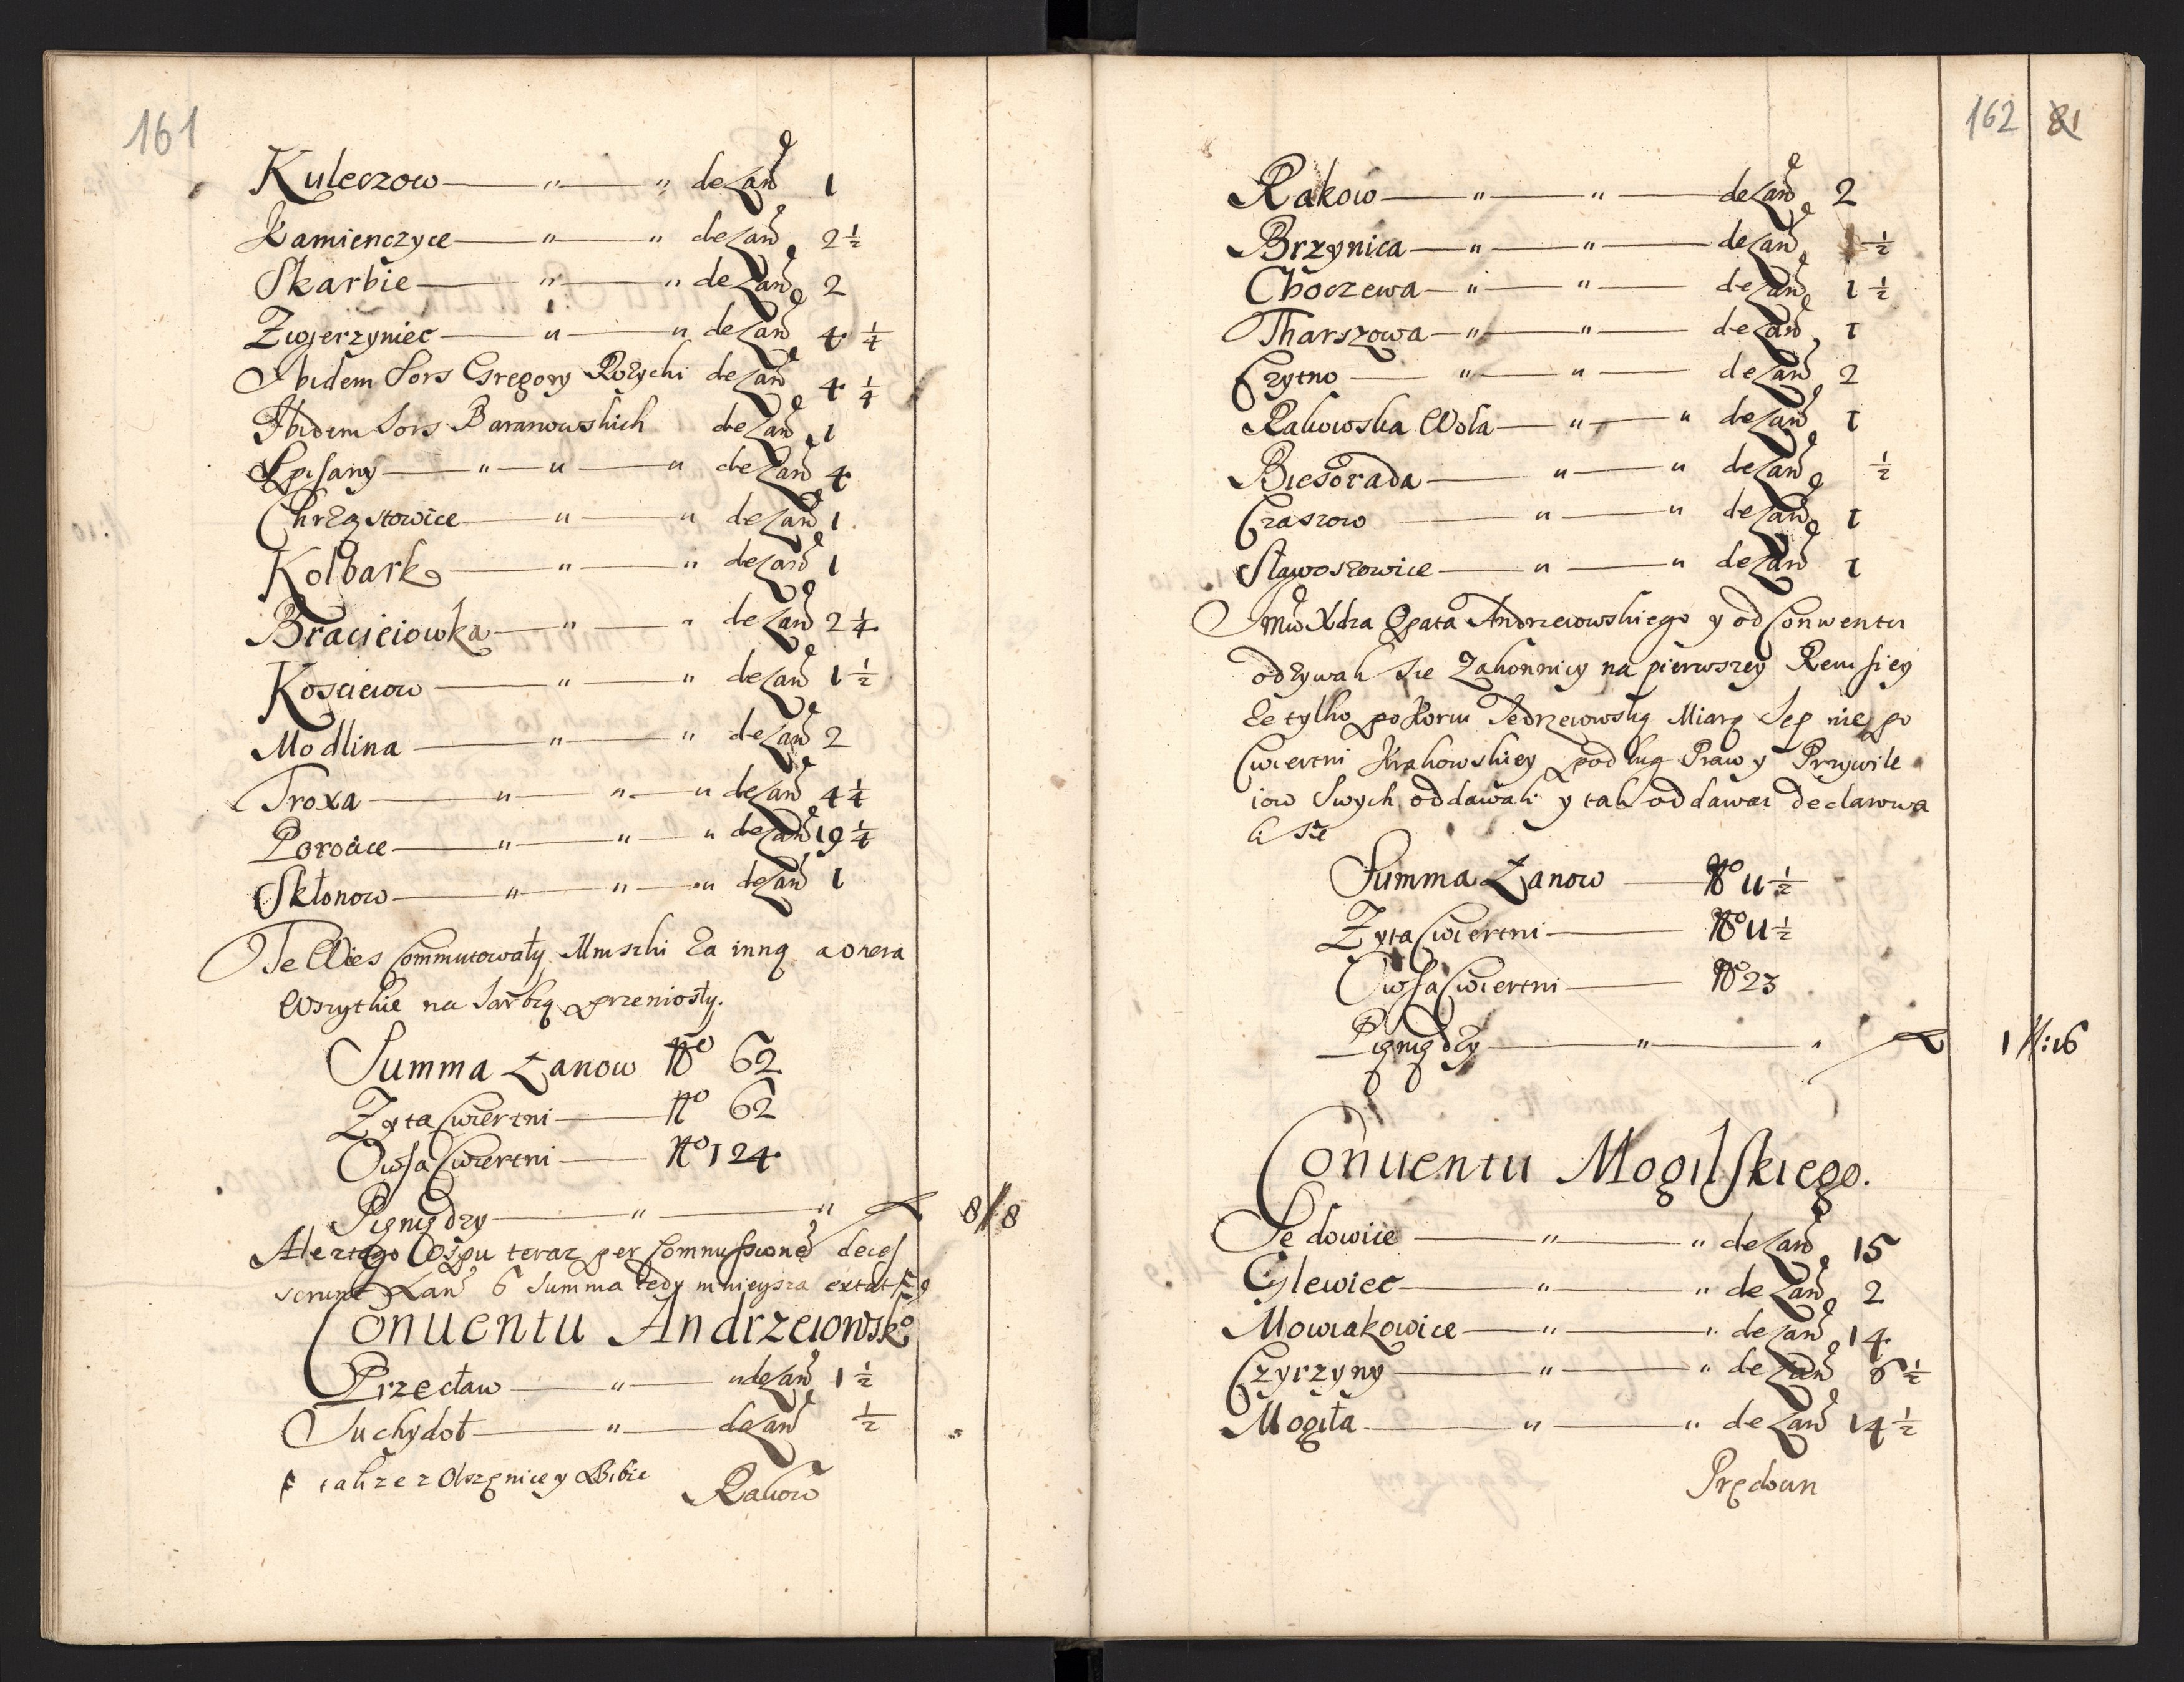 161
Kuleczow — " — " de Łan 1
Kamienczyce — " — " de Łan 2 1/2
Skarbie — " — " de Łan 2
Zwierzyniec — " — " de Łan 4 1/4
Ibidem Sors Gregory Rożycki de Łan 4 1/4
Ibidem Sors Baranowskich de Łan 1
Łpisany — " — " — " de Łan 4
Chrząstowice — " — " de Łan 1
Kolbark — " — " de Łan 1
Braciciowka — " — " de Łan 2 1/4
Kosciciow — " — " de Łan 1 1/2
Modlina — " — " de Łan 2
Troxa — " — " — " de Łan 4 1/4
Poroice — " — " — " de Łan 19 1/4
Skłonow — " — " — " de Łan 1
Te Wies Commutowały Mniszki Za inną a onera
Wszytkie na Sarbią przeniosły.
Summa Łanow No 62
Zyta Cwiertni — No 62
Owsa Cwiertni — No 124
Pieniędzy — " — " 8 // 8
Ale z tego Ospu teraz per Commissionem deces
serunt Łan 6 Summa tedy mnieysza extat
Conuentu Andrzeiowsko
Przecław — " — " de Łan 1 1/2
Suchydoł — " — de Łan 1/2
takze z Olszęnice y Bibic
Rakow
162 81
Rakow — " — " — de Łan 2
Brzynica — " — " — de Łan 1/2
Choczewa — " — " — de Łan 1 1/2
Tharszowa — " — " — de Łan 1
Czytno — " — " — de Łan 2
Rakowska Wola — " — " de Łan 1
Biesorada — " — " de Łan 1/2
Czaszow — " — " de Łan 1
Sławoszowice — " — " de Łan 1
Xdza Opata Andrzeiowskiego y od Conwentu
odzywali sie Zakonnicy na pierwszey
Ze tylko po Korcu Jędrzeiowską Miarą Sep nie po
Cwiertni Krakowskiey podług Praw y Przywile
iow Swych oddawali y tak oddawac declarowa
li sie
Summa Łanow — No 11 1/2
Zyta Cwiertni — No 11 1/2
Owsa Cwiertni — No 23
Pieniędzy — " — " 1 //:16
Conuentu Mogilskiego.
Sedowice — " — " de Łan 15
Glewiec — " — " de Łan 2
Mowiakowice — " — " de Łan 14
Czyrzyny — " — " de Łan 6 1/2
Mogiła — " — " de Łan 14 1/2
Prędoun